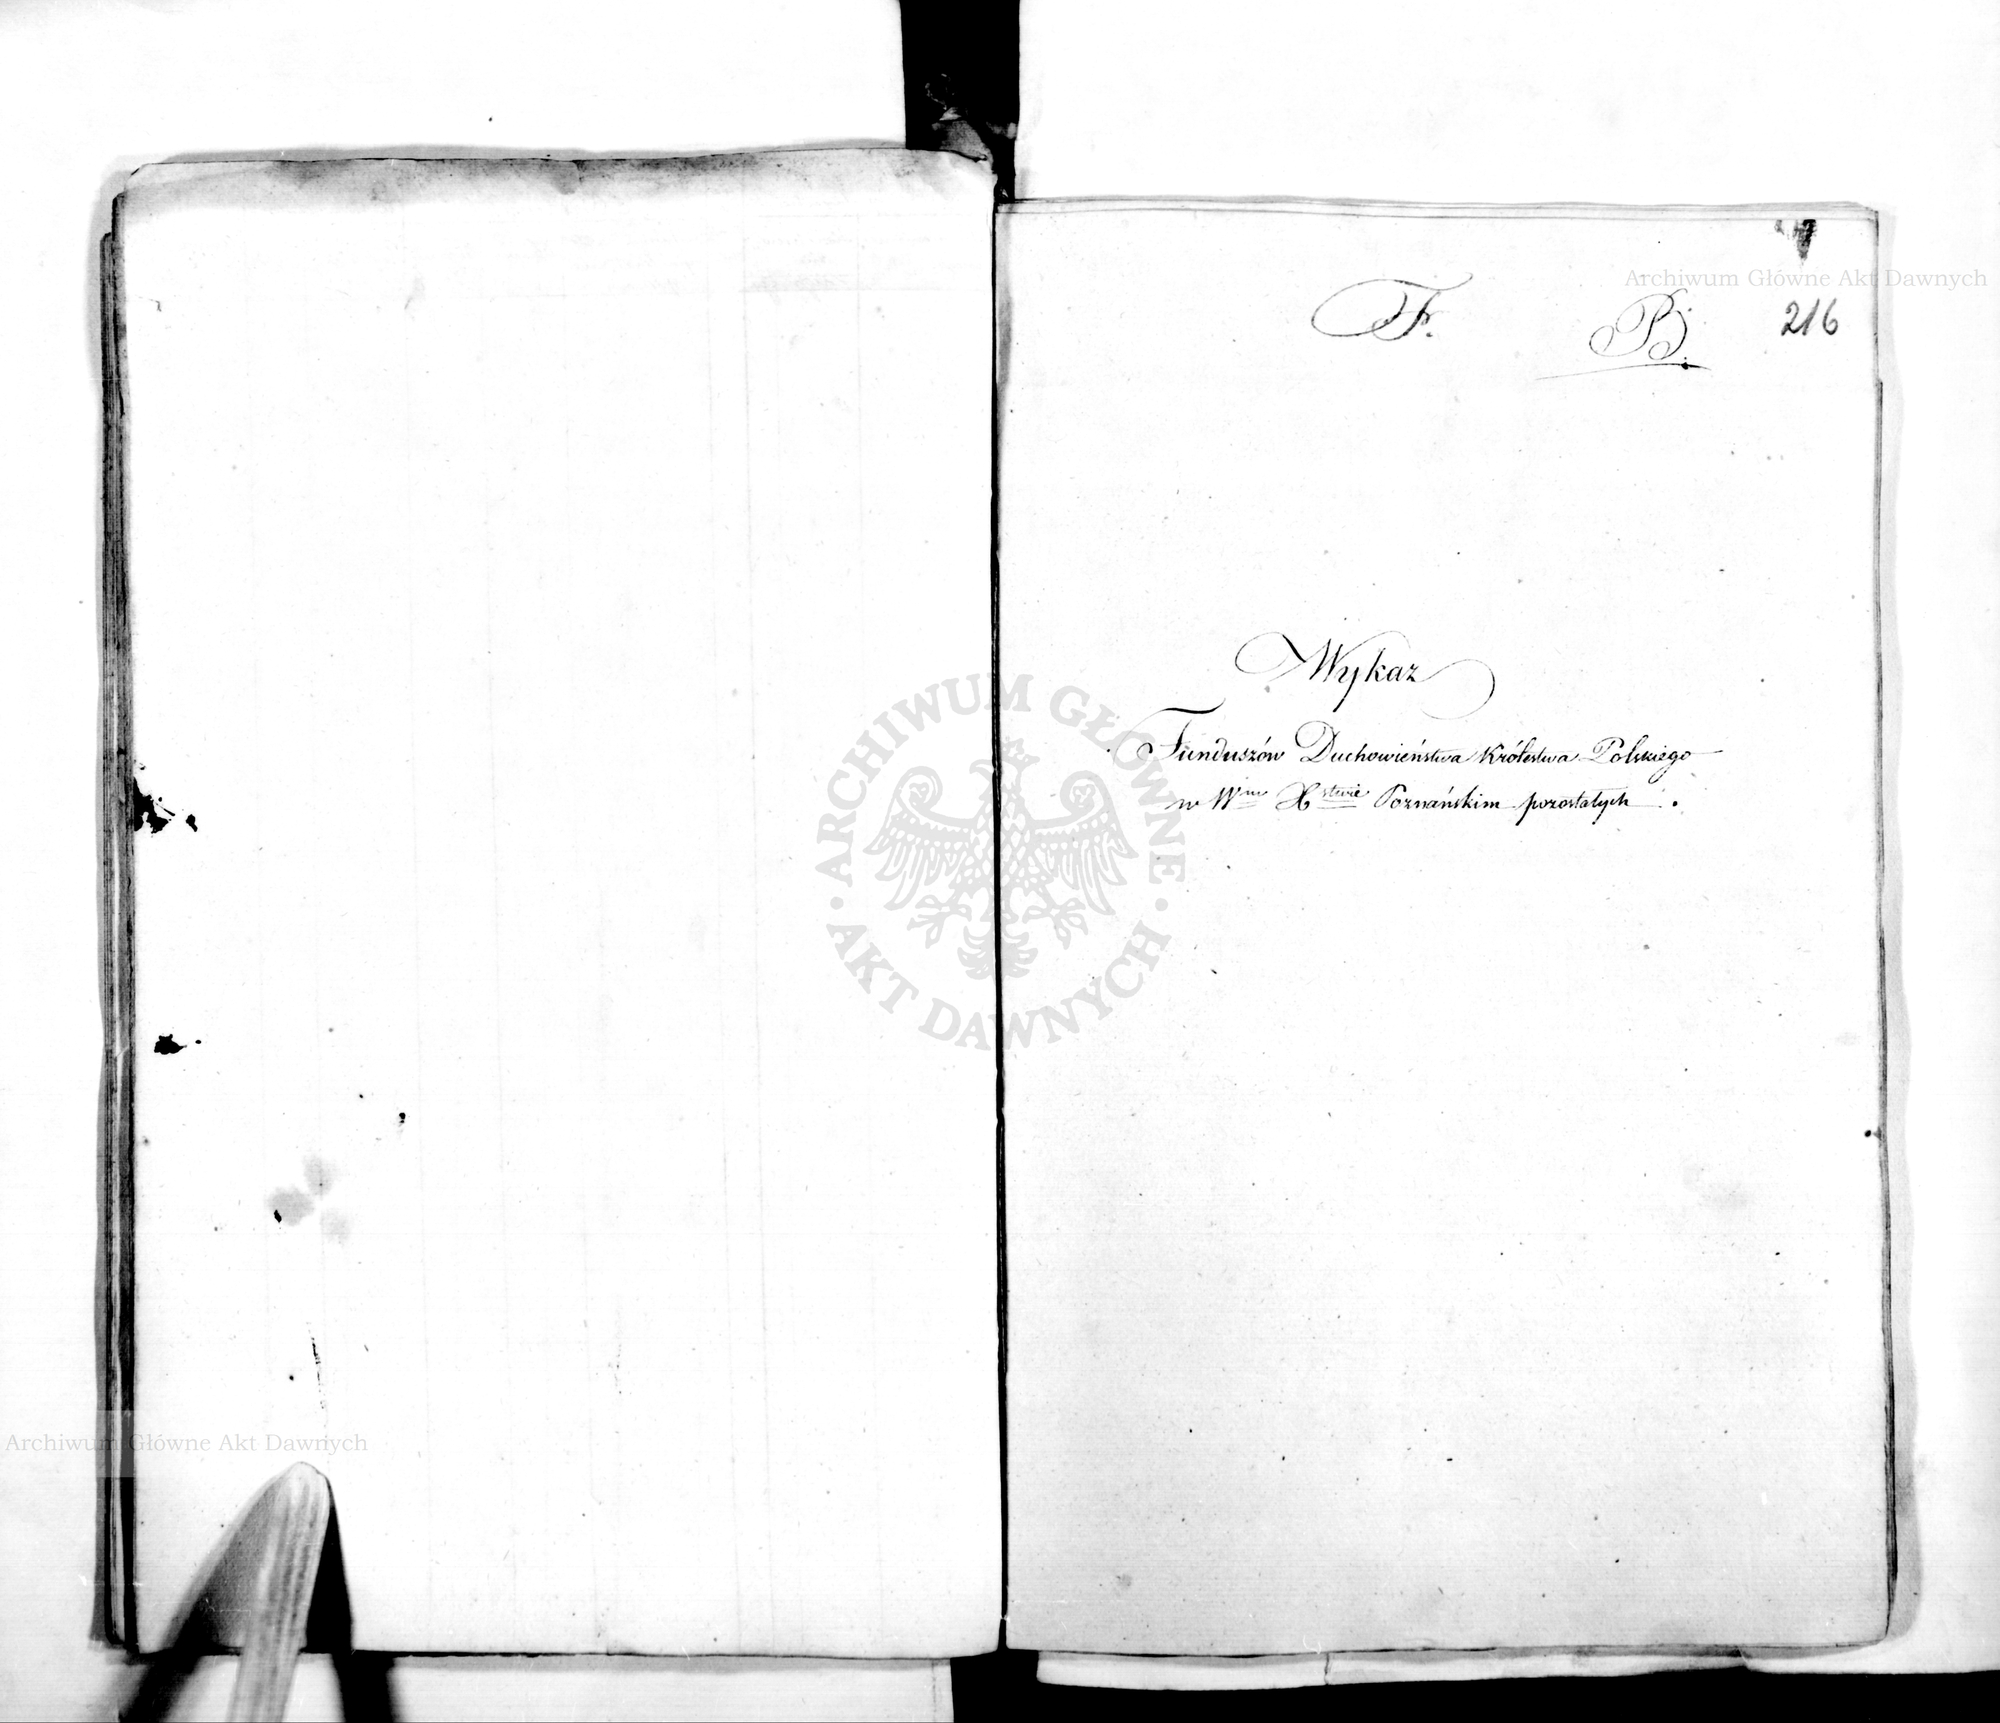 Archiwum Główne Akt Dawnych
F. B.
216
Wykaz
Funduszów Duchowieństwa Królestwa Polskiego
w Wm Xstwie Poznańskim pozostałych.
ARCHIWUM GŁÓWNE
AKT DAWNYCH
Archiwum Główne Akt Dawnych